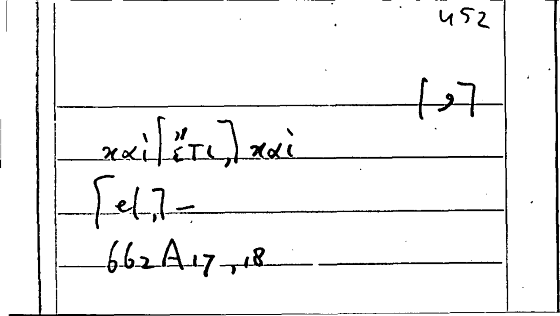 452
[,]
καὶ [ἔτι,] καὶ
[el,] —
662 A 17, 18